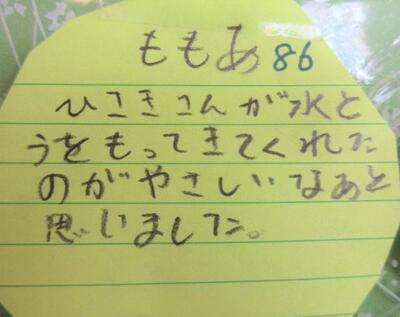 ももあ 86
ひさきさんが水と
うをもってきてくれた
のがやさしいなあと
思いました。